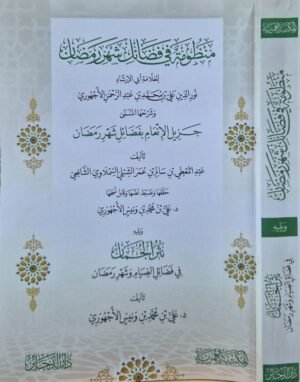 منظومة في فضائل شهر رمضان
للعلامة أبي الإرشاد
نور الدين علي بن محمد بن عبد الرحمن الأجهوري
وشرحها المسمى
جزيل الإنعام بفضائل شهر رمضان
تأليف
عبد المعطي بن سالم بن عمر الشبلي السملاوي الشافعي
حققها وضبط نصها وقابل نسخها
د. علي بن محمد بن ونيس الأجهوري
ويليه
نثر الجمان
في فضائل الصيام وشهر رمضان
تأليف
د. علي بن محمد بن ونيس الأجهوري
منظومة في فضائل شهر رمضان
ويليه
نثر الجمان
في فضائل الصيام وشهر رمضان
د. علي بن محمد بن ونيس الأجهوري